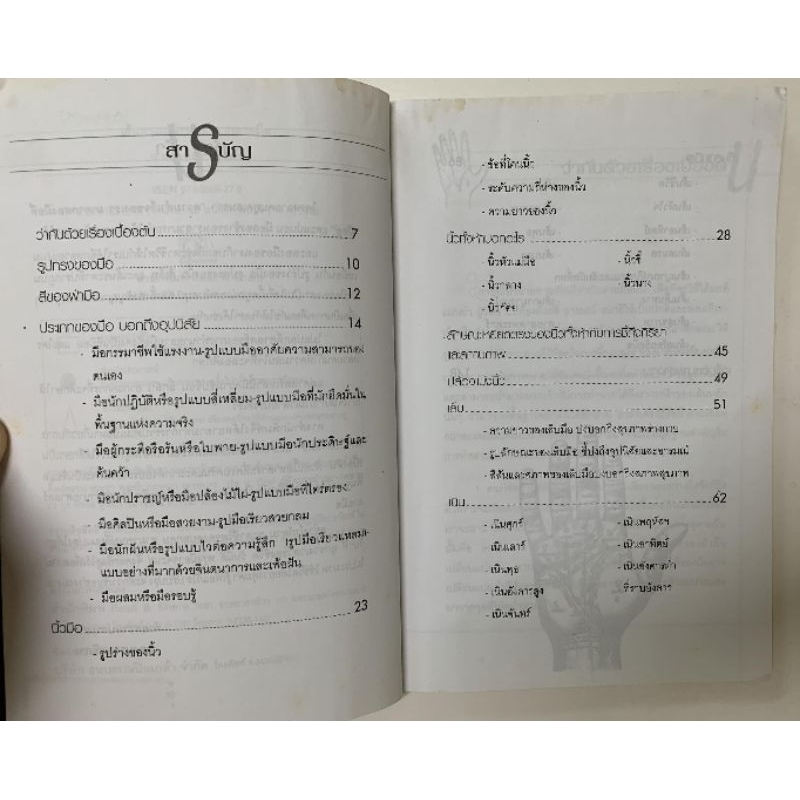 สารบัญ
ว่ากันด้วยเรื่องเบื้องต้น 7
รูปทรงของมือ 10
สีของฝ่ามือ 12
ประเภทของมือ บอกถึงอุปนิสัย 14
- มือกรรมาชีพใช้แรงงาน-รูปแบบมืออาศัยความสามารถของ
ตนเอง
- มือนักปฏิบัติหรือรูปแบบสี่เหลี่ยม-รูปแบบมือที่มักยึดมั่นใน
พื้นฐานแห่งความจริง
- มือผู้กระตือรือร้นหรือใบพาย-รูปแบบมือนักประดิษฐ์และ
ค้นคว้า
- มือนักปราชญ์หรือมือปล้องไม้ไผ่-รูปแบบมือที่ไตร่ตรอง
- มือศิลปินหรือมือสวยงาม-รูปมือเรียวสวยกลม
- มือนักฝันหรือรูปแบบไวต่อความรู้สึก (รูปมือเรียวแหลม-
แบบอย่างที่มากด้วยจินตนาการและเพ้อฝัน
- มือผสมหรือมือรอบรู้
นิ้วมือ 23
- รูปร่างของนิ้ว
- ข้อที่โคนนิ้ว
- ระดับความถี่ห่างของนิ้ว
- ความยาวของนิ้ว
นิ้วทั้งห้าบอกอะไร 28
- นิ้วหัวแม่มือ - นิ้วชี้
- นิ้วกลาง - นิ้วนาง
- นิ้วก้อย
ลักษณะหงิกและตรงของนิ้วทั้งห้ากับการชี้ถึงกิริยา
และความภาพ 45
ปล้องของนิ้ว 49
เล็บ 51
- ความยาวของเล็บมือ บ่งบอกถึงสุขภาพร่างกาย
- รูปลักษณะของเล็บมือ ชี้บ่งถึงอุปนิสัยและอารมณ์
- สีสันและสภาพของเล็บมือบ่งบอกถึงสภาพสุขภาพ
เนิน 62
- เนินศุกร์ - เนินพฤหัสฯ
- เนินเสาร์ - เนินอาทิตย์
- เนินพุธ - เนินอังคารต่ำ
- เนินอังคารสูง ที่ราบอังคาร
- เนินจันทร์